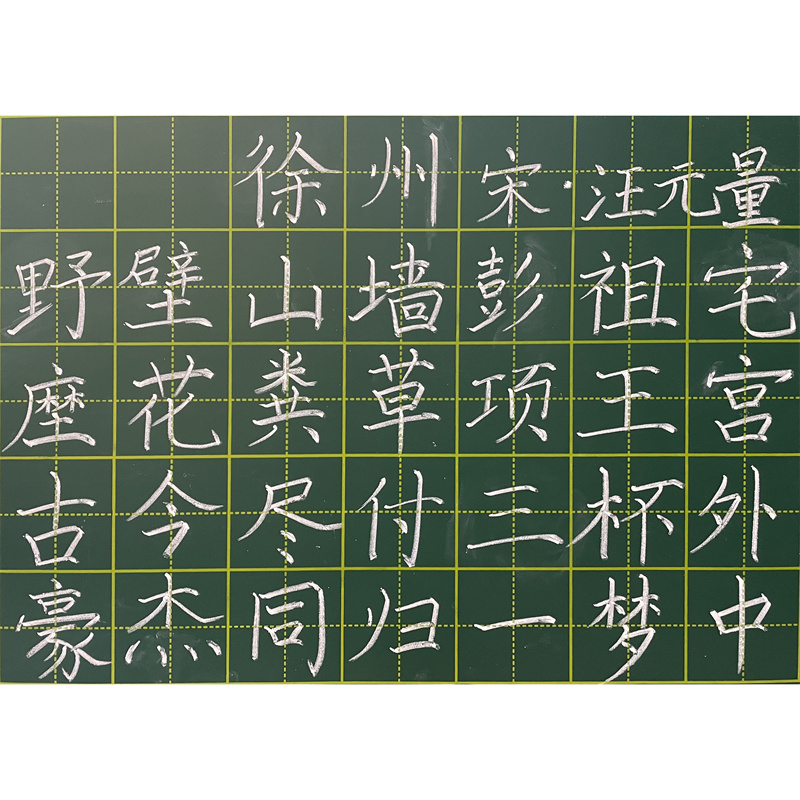 徐州 宋·汪元量
野壁山墙彭祖宅
塺花粪草项王宫
古今尽付三杯外
豪杰同归一梦中